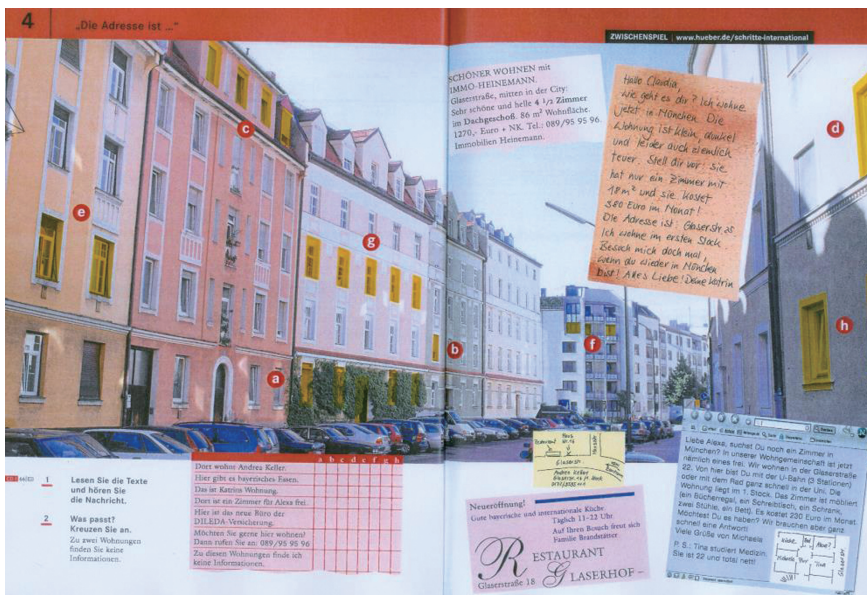 4 „Die Adresse ist ..."
ZWISCHENSPIEL | www.hueber.de/schritte-international
SCHÖNER WOHNEN mit
IMMO-HEINEMANN.
Glaserstraße, mitten in der City:
Sehr schöne und helle 4 1/2 Zimmer
im Dachgeschoß. 86 m² Wohnfläche.
1270,- Euro + NK. Tel.: 089/95 95 96
Immobilien Heinemann.
Hallo Claudia,
wie geht es dir? Ich wohne
jetzt in München. Die
Wohnung ist klein, dunkel
und leider auch ziemlich
teuer. Stell dir vor: Sie
hat nur ein Zimmer mit
18 m² und sie kostet
580 Euro im Monat!
Die Adresse ist: Glaserstr. 25
Ich wohne im ersten Stock.
Besuch mich doch mal,
wenn du wieder in München
bist! Alles Liebe! Deine Katrin
c
d
e
g
h
b
f
a
1 Lesen Sie die Texte
und hören Sie
die Nachricht.
2 Was passt?
Kreuzen Sie an.
Zu zwei Wohnungen
finden Sie keine
Informationen.
a b c d e f g h
Dort wohnt Andrea Keller.
Hier gibt es bayerisches Essen.
Das ist Katrins Wohnung.
Dort ist ein Zimmer für Alexa frei.
Hier ist das neue Büro der
DILEDA-Versicherung.
Möchten Sie gerne hier wohnen?
Dann rufen Sie an: 089/95 95 96
Zu diesen Wohnungen finde ich
keine Informationen.
Restaurant
Glaserstr.
Andrea Keller
Neueröffnung!
Gute bayrische und internationale Küche
Täglich 11–22 Uhr
Auf Ihren Besuch freut sich
Familie Brandstätter
RESTAURANT
GLASERHOF
Glaserstraße 18
Liebe Alexa, suchst Du noch ein Zimmer in
München? In unserer Wohngemeinschaft ist jetzt
nämlich eines frei. Wir wohnen in der Glaserstraße
22. Von hier bist Du mit der U-Bahn (3 Stationen)
oder mit dem Rad ganz schnell in der Uni. Die
Wohnung liegt im 1. Stock. Das Zimmer ist möbliert
(ein Bücherregal, ein Schreibtisch, ein Schrank,
zwei Stühle, ein Bett). Es kostet 230 Euro im Monat.
Möchtest Du es haben? Wir brauchen aber ganz
schnell eine Antwort!
Viele Grüße von Michaela
P. S.: Tina studiert Medizin.
Sie ist 22 und total nett!
Küche Bad
Tina
Glaserstr